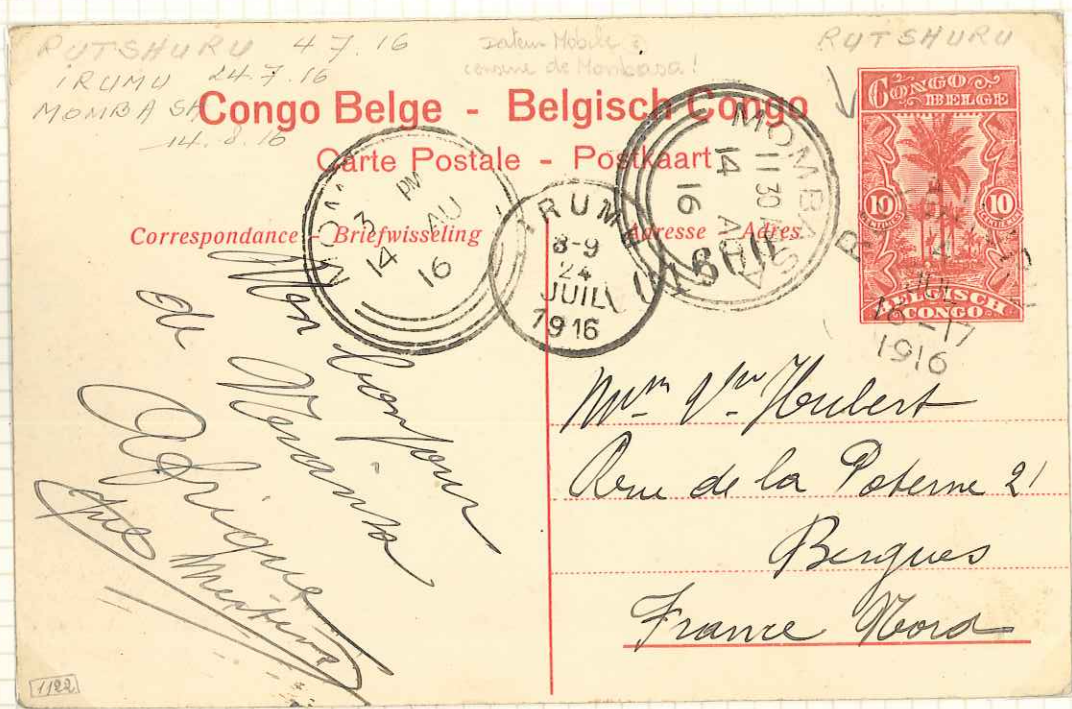 RUTSHURU 4.7.16
IRUMU 24.7.16
MOMBASA
14.8.16
censure de Mombasa!
RUTSHURU
Congo Belge - Belgisch Congo
Carte Postale - Postkaart
Correspondance - Briefwisseling
Adresse - Adres
CONGO BELGE
10 10
BELGISCH CONGO
3 PM
14 AU
16
IRUMU
8-9
24
JUIL
1916
MOMBASA
11 30 AM
14 AU
16
JUL
16-17
1916
Mon bonjour
de
Afrique
Mme Vve Hubert
Rue de la Poterne 21
Bergues
France Nord
1122